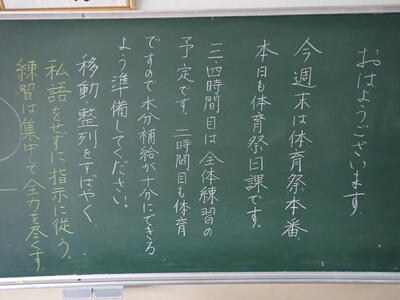 おはようございます。
今週末は体育祭本番。
本日も体育祭日課です。
三、四時間目は全体練習の
予定です。二時間目も体育
ですので水分補給が十分にできる
よう準備してください。
移動、整列をすばやく、
私語をせずに指示に従う。
練習は集中して全力を尽くす。